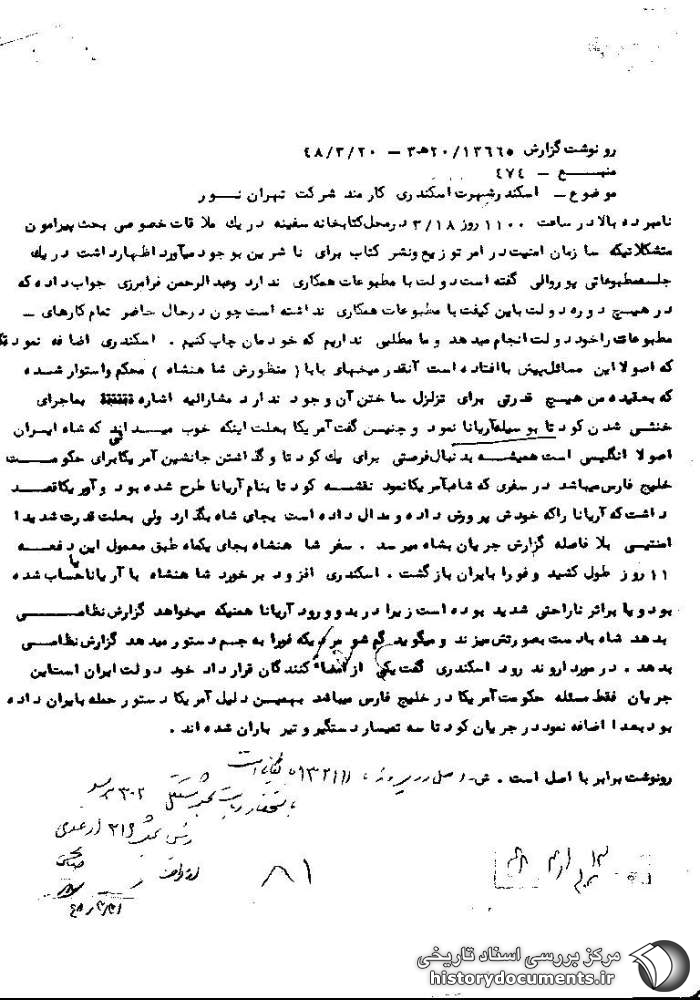 رونوشت گزارش ۲۰/۱۳۶۶۵ﻫ۳ – ۴۸/۳/۲۰
منبع – ۴۷۴
موضوع – اسکندر شهرت اسکندری کارمند شرکت تهران نور
نامبرده بالا در ساعت ۱۱۰۰ روز ۳/۱۸ در محل کتابخانه سفینه در یک ملاقات خصوصی بحث پیرامون
مشکلاتیکه سازمان امنیت در امر توزیع و نشر کتاب برای ناشرین بوجود میآورد اظهار داشت در یک
جلسه مطبوعاتی پوروالی گفته است دولت با مطبوعات همکاری ندارد و عبدالرحمن فرامرزی جواب داده که
در هیچ دوره دولت باین کیفت با مطبوعات همکاری نداشته است چون در حال حاضر تمام کارهای –
مطبوعات را خود دولت انجام میدهد و ما مطلبی نداریم که خودمان چاپ کنیم . اسکندری اضافه نمود
که اصولا این مسائل پیش پا افتاده است آنقدر میخهای بابا ( منظورش شاهنشاه ) محکم و استوار شده
که بعقیده من هیچ قدرتی برای تزلزل ساختن آن وجود ندارد مشارالیه اشاره بماجرای
خنثی شدن کودتا بوسیله آریانا نمود و چنین گفت آمریکا بعلت اینکه خوب میداند که شاه ایران
اصولا انگلیسی است همیشه بدنبال فرصتی برای یک کودتا و گذاشتن جانشین آمریکا برای حکومت
خلیج فارس میباشد در سفری که شاه بآمریکا نمود نقشه کودتا بنام آریانا طرح شده بود و آمریکا قصد
داشت که آریانا را که خودش پرورش داده و مدال داده است بجای شاه بگذارد ولی بعلت قدرت شدید
امنیتی بلافاصله گزارش جریان بشاه میرسد . سفر شاهنشاه بجای یکماه طبق معمول این دفعه
۱۱ روز طول کشید و فورا بایران بازگشت . اسکندری افزود برخورد شاهنشاه با آریانا یا حساب شده
بود و یا براثر ناراحتی شدید بوده است زیرا در بدو ورود آریانا همینکه میخواهد گزارش نظامی
بدهد شاه با دست بصورتش میزند و میگوید گم شو مردیکه فورا به جم دستور میدهد گزارش نظامی
بدهد . در مورد اروند رود اسکندری گفت یکی از امضاء کنندگان قرارداد خود دولت ایران است این
جریان فقط مسئله حکومت آمریکا در خلیج فارس میباشد بهمین دلیل آمریکا دستور حمله بایران داده
بود بعدا اضافه نمود در جریان کودتا سه تیمسار دستگیر و تیر باران شده اند .
رونوشت برابر با اصل است . اصل در پرونده
۸۱
مرکز بررسی اسناد تاریخی
historydocuments.ir